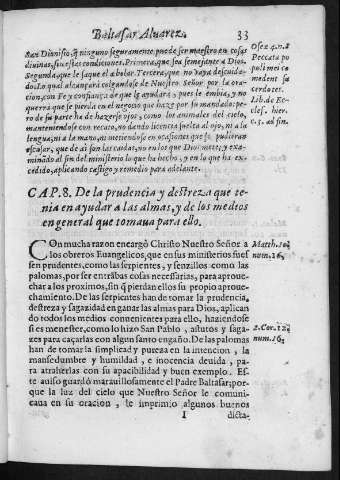 Baltasar Aluarez. 33
San Dionisio, q̃ ninguno seguramente puede ser maestro en cosas
diuinas, sin estas condiciones. Primera, que sea semejante a Dios.
Segunda, que le saque el abolar. Tercera, que no vaya descuida-
do. Lo qual alcançarà colgandose de Nuestro Señor por la ora-
cion, con Fe y confiança de que le ayudarà, pues le embia, y no
querra que se pierla en el negocio que haze por su mandado: pe-
ro de su parte ha de hazerse ojos, como los animales del cielo,
manteniendose con recato, no dando licencia suelta al ojo, ni a la
lengua, ni a la mano, ni metiendose en ocasiones que se pudieran
escusar, que de ai son las caidas, no en los que Dios mete; y exa-
minãdo al fin del ministerio lo que ha hecho, y en lo que ha ex-
cedido, aplicando castigo y remedio para adelante.
Osex 4. n. 8
Peccata po
puli mei co
medent sa
cerdotes.
Lib. de Ec
cles. hier.
c. 3. ad fin.
CAP. 8. De la prudencia y destreza que te-
nia en ayudar a las almas, y de los medios
en general que tomaua para ello.
COn mucha razon encargò Christo Nuestro Señor a
los obreros Euangelicos, que en sus ministerios fues
sen prudentes, como las serpientes, y senzillos como las
palomas, por ser entrãbas cosas necessarias, para aproue-
char a los proximos, sin q̃ pierdan ellos su propio aproue-
chamiento. De las serpientes han de tomar la prudencia,
destreza y sagazidad en ganar las almas para Dios, aplican
do todos los medios conuenientes para ello, haziendose
si es menester, como lo hizo San Pablo, astutos y saga-
zes para caçarlas con algun santo engaño. De las palomas
han de tomar la simplicidad y pureza en la intencion, la
mansedumbre y humildad, e inocencia deuida, pa-
ra atraherlas con su apacibilidad y buen exemplo. Es-
te auiso guardò marauillosamente el Padre Baltasar; por-
que la luz del cielo que Nuestro Señor le comuni-
caua en su oracion, le imprimio algunos buenos
Matth. 10.
num. 16.
2. Cor. 12.
num. 16.
I dicta-